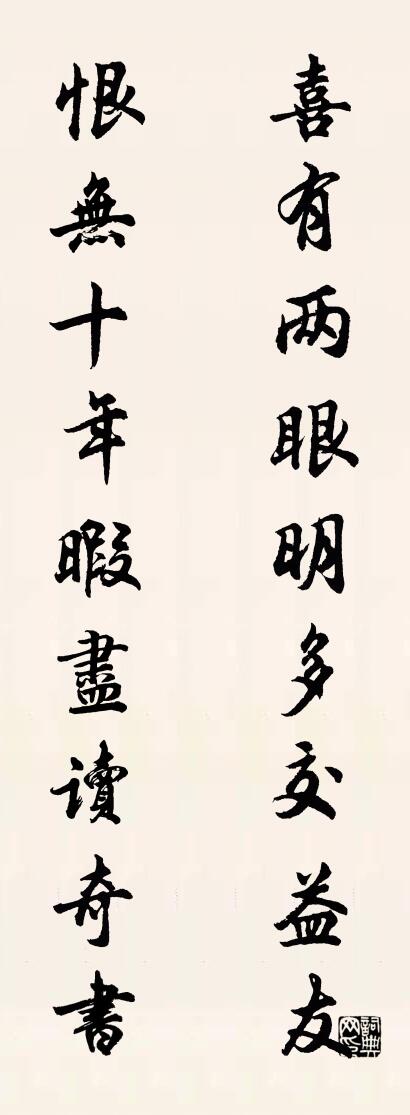 喜有两眼明多交益友
恨無十年暇盡讀奇書